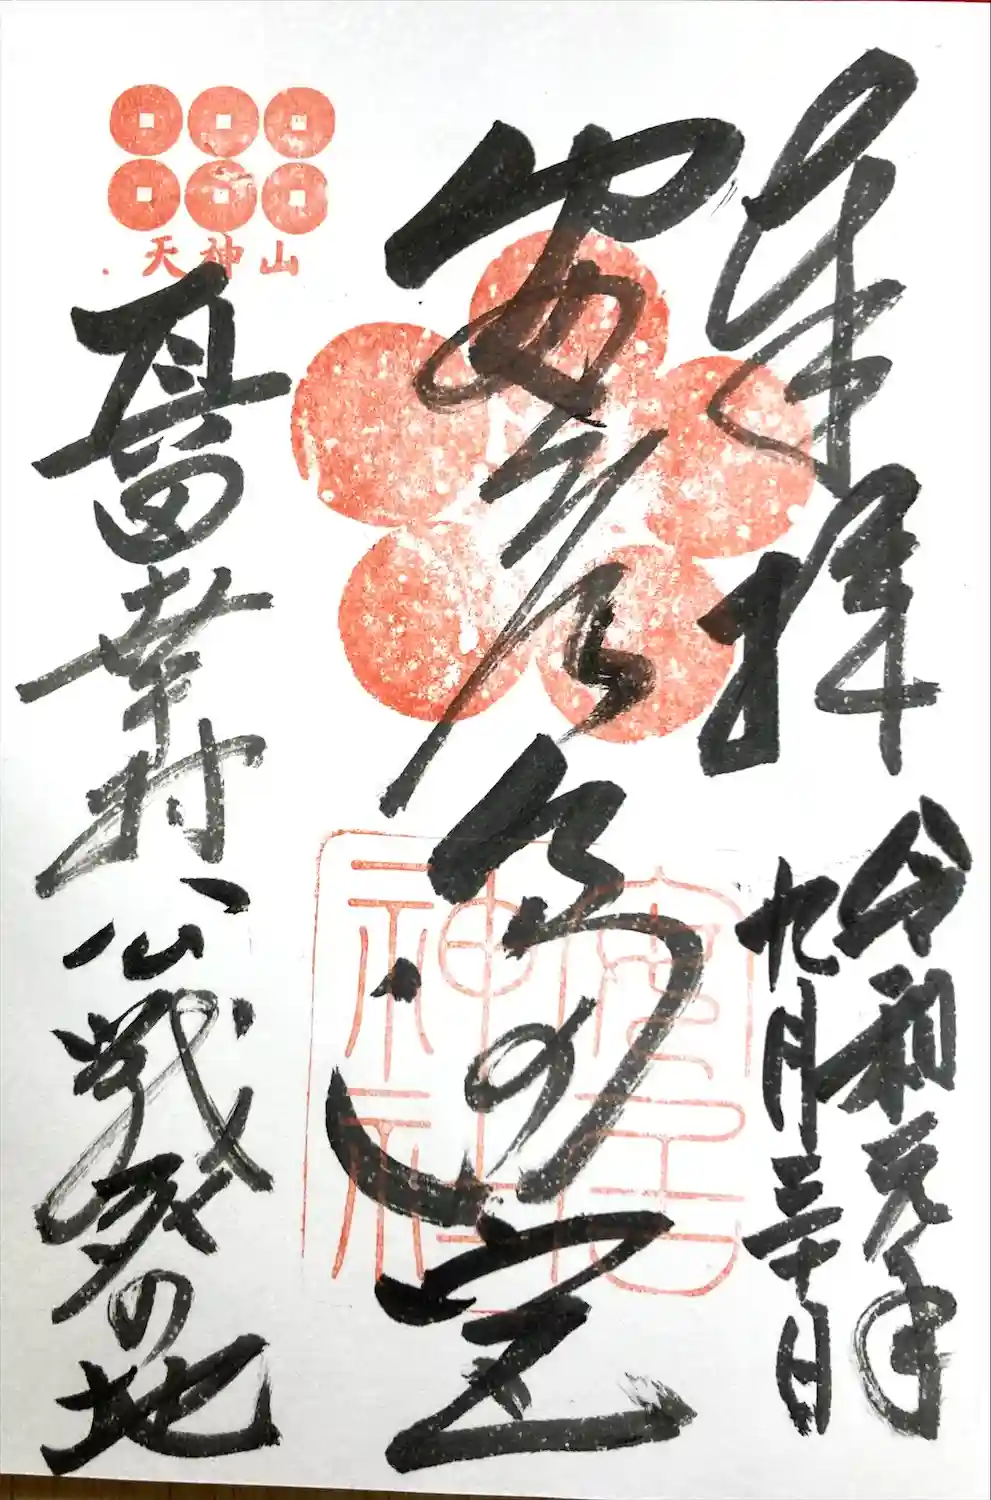 奉拝
令和元年
九月三十日
安居天満宮
安居神社
天神山
真田幸村公戦死の地